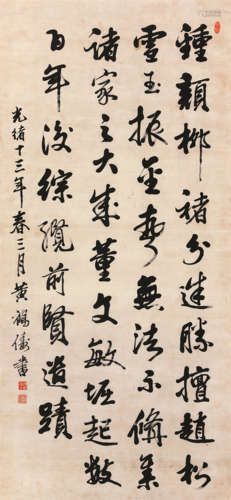 鍾顏柳褚各造勝擅趙松
雪玉振金聲無法不備集
諸家之大成董文敏堀起數
百年後綜覽前賢遺蹟
光緒十三年春三月黃福儀書